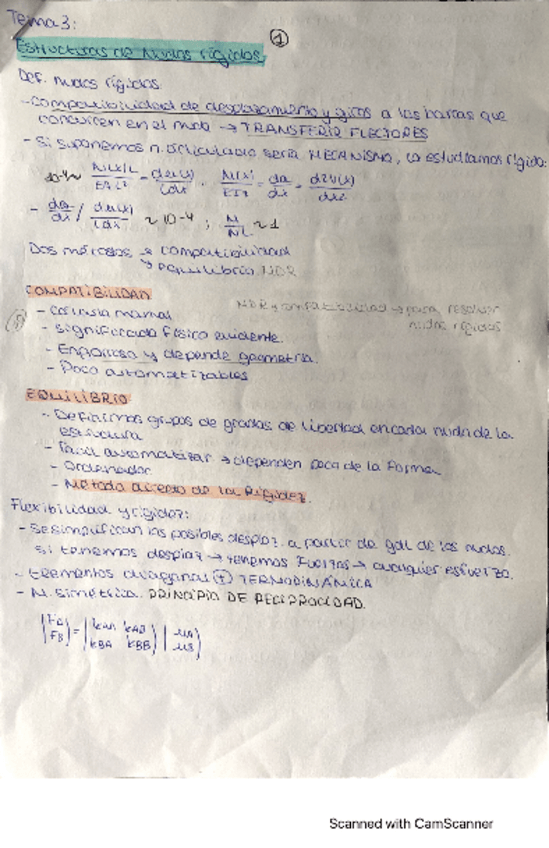 Tema 3:
1
Estructuras de Nudos rígidos.
Def. nudos rígidos.
- Compatibilidad de desplazamiento y giros a las barras que
concurren en el nudo → TRANSFERIR FLECTORES
- Si suponemos n. articulado sería MECANISMO, lo estudiamos rígido:
Dos métodos → compatibilidad
→ equilibrio MDR
COMPATIBILIDAD
MDR y compatibilidad → para resolver
nudos rígidos
- Cálculo manual
- Significado físico evidente.
- Engorrosa y depende geometría.
- Poco automatizables
EQUILIBRIO
- Definimos grupos de grados de libertad en cada nudo de la
estructura
- Fácil automatizar → dependen poco de la forma
- Ordenador
- Método directo de la Rigidez.
Flexibilidad y rigidez:
- Se simplifican los posibles desplaz. a partir de gdl de los nudos.
si tenemos desplaz → tenemos fuerzas → cualquier esfuerzo.
- Elementos diagonal (+) TERMODINÁMICA
- M. simétrica. PRINCIPIO DE RECIPROCIDAD.
|FA| = |kAA kAB| |uA|
|FB| |kBA kBB| |uB|
Scanned with CamScanner